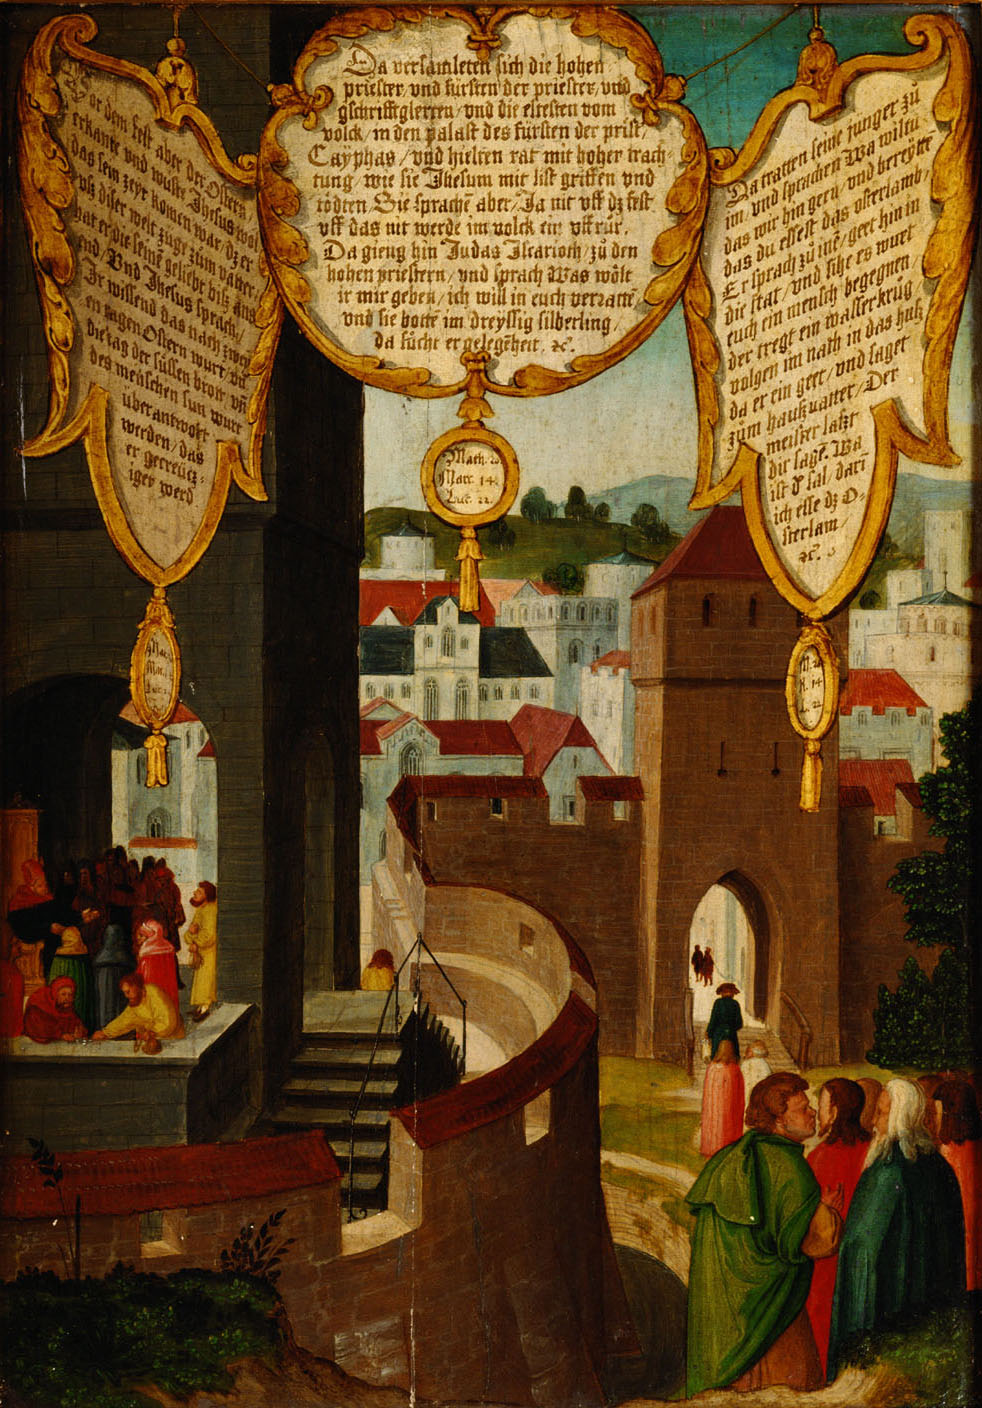 Vor dem fest aber der Osterñ/
erkant und wust Ihesus wol
das sein zeyt komen war/ dz er
vß diser welt zuge zum vatter
hat er die seinē geliebt biß ans
end/ Und Ihesus sprach/
Ir wissend das nach zwei
en tagen Ostern wurt/ vn̄
die tag der süssen brott/ vn̄
des menschen sun wurt
überantwort
werden/ das
er gecreütz-
iget werd
Math.
Mar.
Luc. 22
Da versamleten sich die hohen
priester/ vnd fürsten der priester/ vnd
gschrifftglerten/ vnd die eltesten vom
volck/ in den palast des fürsten der prist/
Cayphas/ vnd hielten rat mit hoher trach
tung/ wie sie Ihesum mit list griffen vnd
tödten Sie sprachē aber/ Ja nit vff dz fest
vff das nit werde im volck ein vffrůr.
Da gieng hin Judas Iscarioth/ zů den
hohen priestern/ vnd sprach Was wölt
ir mir geben/ ich will in euch verratē
vnd sie bottē im dreyssig silberling/
da sücht er gelegēheit. ꝛc.
Math. 26
Marc. 14.
Luc. 22.
Da tratten seine junger zů
im/ vnd sprachen Wa wiltu
das wir hingen/ vnd bereytē
das du essest das osterlamb/
Er sprach zů inē/ geet hin in
die statt/ vnd sihe es wurt
euch ein mensch begegnen/
der tregt ein wasserkrůg/
volgen im nach in das huß
da er ein geet/ vnd saget
zům haußvatter/ Der
meister laßt
dir sagē. Wa
ist d' sal/ dari
ich esse dz O-
sterlam/
ꝛc.
M. 26
M. 14
L. 22